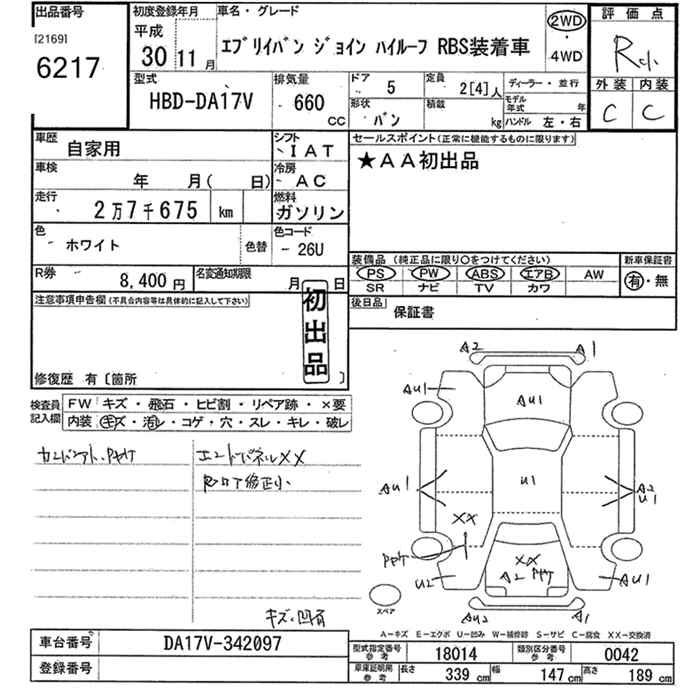 出品番号
[2169]
6217
初度登録年月
平成
30 11月
車名・グレード
エブリイバン ジョイン ハイルーフ RBS装着車
2WD
・
4WD
評価点
外装 内装
C C
型式
HBD-DA17V
排気量
660
CC
ドア
5
定員
2[4]人
ディーラー・並行
形状
バン
積載
kg
モデル年式
年
ハンドル 左・右
車歴
自家用
シフト
IAT
車検
年 月( 日)
冷房
AC
走行
2万7千675 km
燃料
ガソリン
色
ホワイト
色替
色コード
26U
R券
8,400円
名変通知期限
月 日
セールスポイント(正常に機能するものに限ります)
★AA初出品
装備品(純正品に限り○をつけてください)
PS PW ABS エアB AW
SR ナビ TV カワ
新車保証書
有・無
後日品
保証書
注意事項申告欄(不具合内容等は具体的に記入して下さい)
初出品
修復歴 有〔箇所 〕
検査員記入欄
FW キズ・飛石・ヒビ割・リペア跡・×要
内装 キズ・汚レ・コゲ・穴・スレ・キレ・破レ
エンドパネルXX
キズ・凹有
A2 A1
AU1 AU1
AU1 U1 A2 U1
XX
XX
A2
U2 AU1
AU2 A1
スペア
A-キズ E-エクボ U-凹み W-補修跡 S-サビ C-腐食 XX-交換済
車台番号
DA17V-342097
登録番号
型式指定番号
参考
18014
類別区分番号
参考
0042
車庫証明用
参考
長さ 339cm 幅 147cm 高さ 189cm